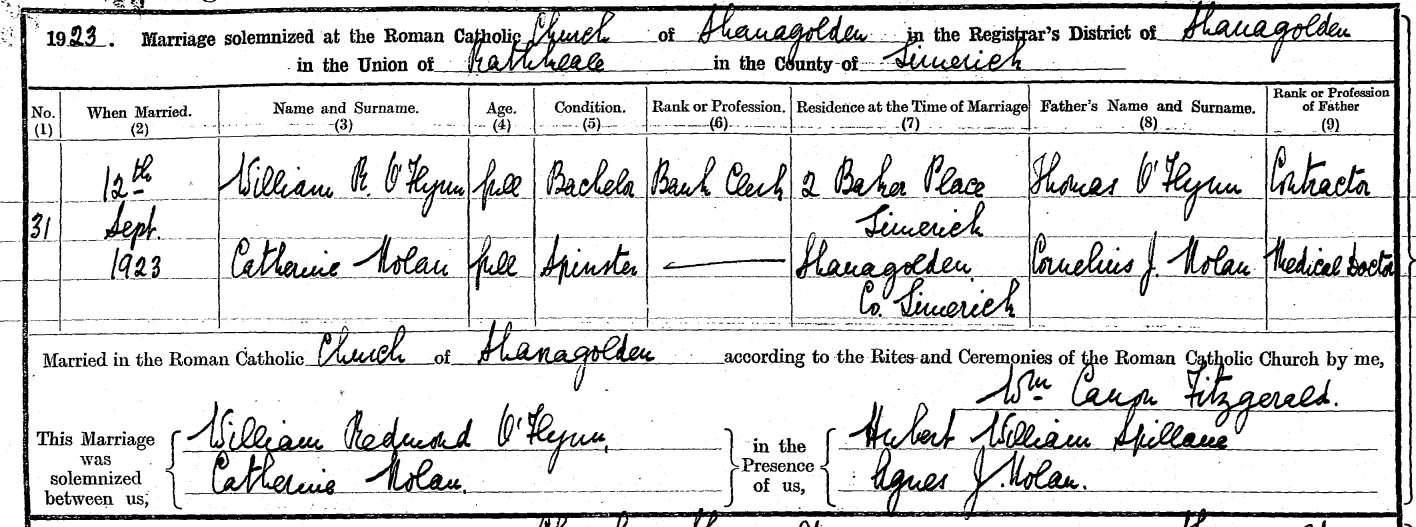 1923. Marriage solemnized at the Roman Catholic Church of Shanagolden in the Registrar's District of Shanagolden
in the Union of Rathkeale in the County of Limerick
No. When Married. Name and Surname. Age. Condition. Rank or Profession. Residence at the Time of Marriage Father's Name and Surname. Rank or Profession of Father
(1) (2) (3) (4) (5) (6) (7) (8) (9)
12th William R. O'Flynn full Bachelor Bank Clerk 2 Baker Place Thomas O'Flynn Contractor
31 Sept. Limerick
1923 Catherine Nolan full Spinster Shanagolden Cornelius J. Nolan Medical Doctor
Co. Limerick
Married in the Roman Catholic Church of Shanagolden according to the Rites and Ceremonies of the Roman Catholic Church by me,
Wm Canon Fitzgerald.
This Marriage was solemnized between us, William Redmond O'Flynn, in the Presence of us, Hubert William Spillane
Catherine Nolan. Agnes J. Nolan.